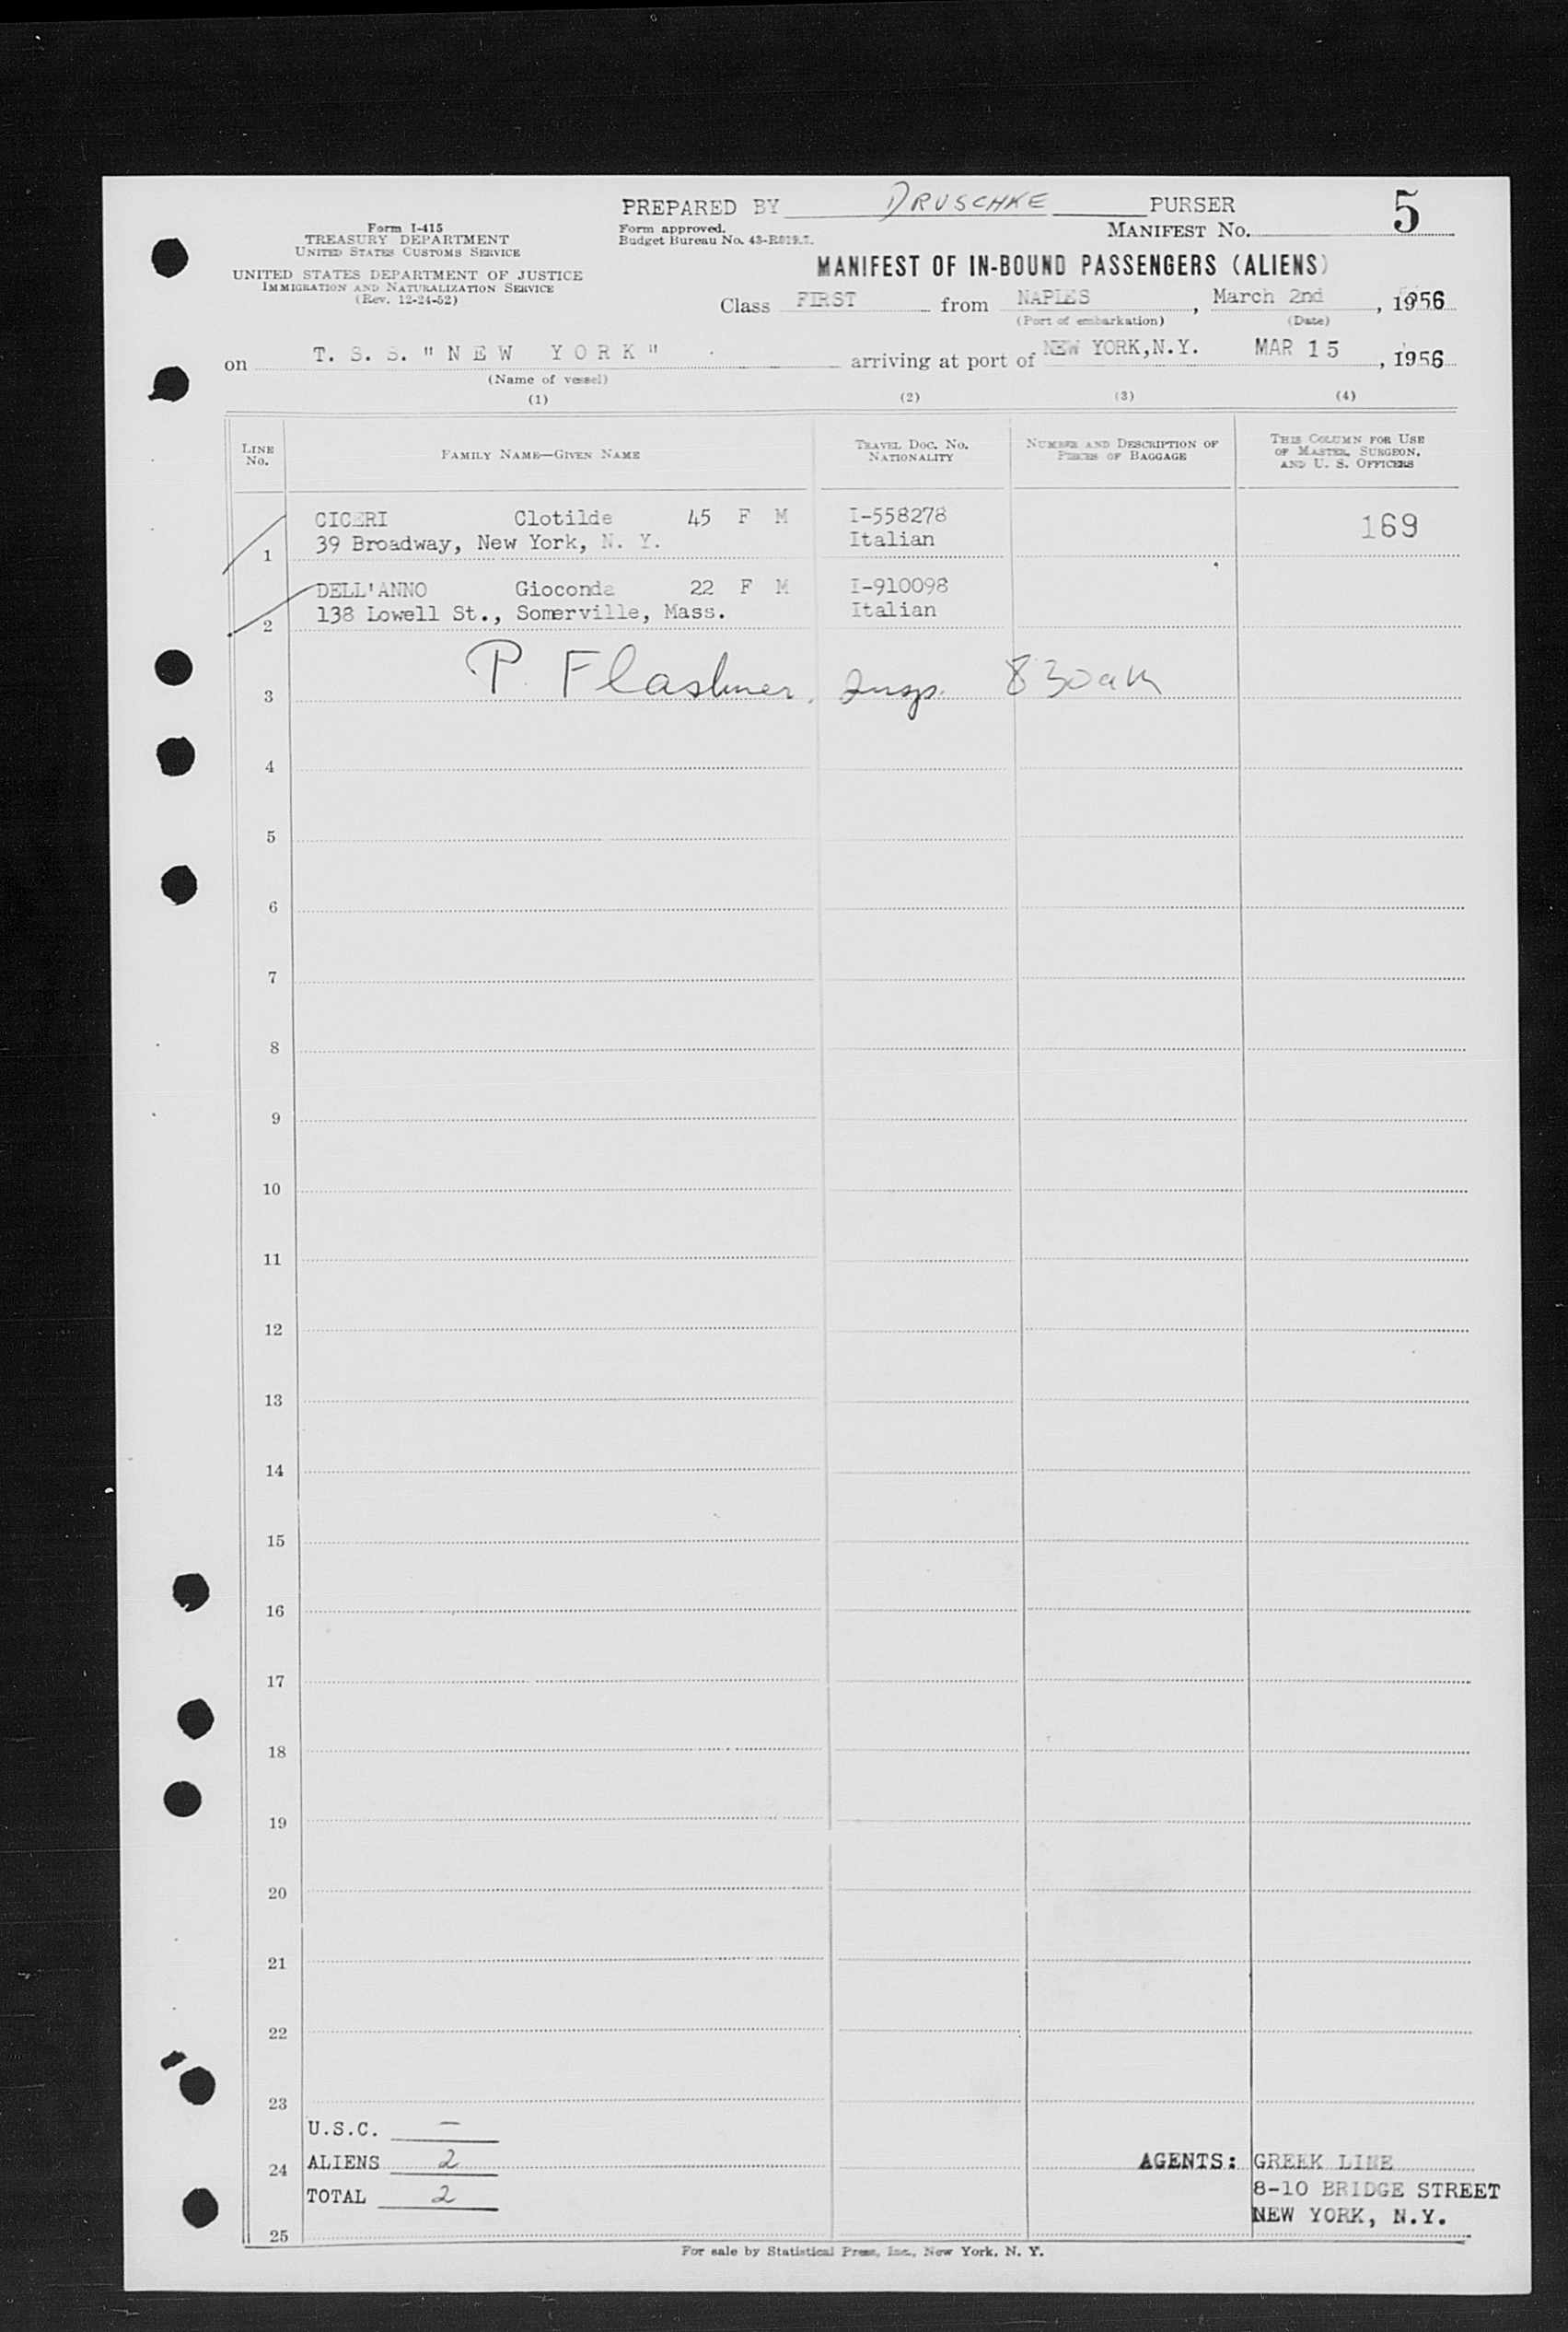 PREPARED BY DRUSCHKE PURSER
5
Form I-415
TREASURY DEPARTMENT
UNITED STATES CUSTOMS SERVICE
UNITED STATES DEPARTMENT OF JUSTICE
IMMIGRATION AND NATURALIZATION SERVICE
(Rev. 12-24-52)
Form approved.
Budget Bureau No.
MANIFEST No.
MANIFEST OF IN-BOUND PASSENGERS (ALIENS)
Class FIRST from NAPLES, March 2nd, 1956
(Port of embarkation) (Date)
on T. S. S. "NEW YORK" arriving at port of NEW YORK, N.Y. MAR 15, 1956
(Name of vessel)
(1) (2) (3) (4)
LINE No.
FAMILY NAME—GIVEN NAME
TRAVEL DOC. No. NATIONALITY
NUMBER AND DESCRIPTION OF PIECES OF BAGGAGE
THIS COLUMN FOR USE OF MASTER, SURGEON, AND U. S. OFFICERS
CICERI Clotilde 45 F M I-558278 169
1 39 Broadway, New York, N. Y. Italian
DELL'ANNO Gioconda 22 F M I-910098
2 138 Lowell St., Somerville, Mass. Italian
3 P. Flashner, Insp. 830am
4
5
6
7
8
9
10
11
12
13
14
15
16
17
18
19
20
21
22
23
U.S.C. —
24 ALIENS 2 AGENTS: GREEK LINE
TOTAL 2 8-10 BRIDGE STREET
NEW YORK, N.Y.
25
For sale by Statistical Press, Inc., New York, N. Y.